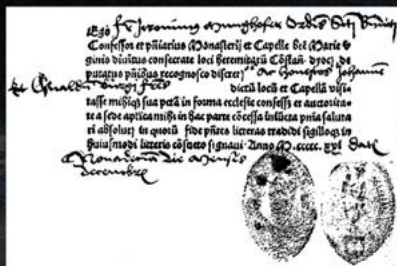 Ego fr Jeronimus Munghofer Ordis Sti Bndicti
Confessor et pñiarius Monasterij et Capelle bēte Marie v
ginis diuinitus consecrate loci heremitarū Cōstañ. dyoc̄ de
putatus pñibus recognosco discret ac honestos Johannē
et dictū locū et Capellā visi
tasse mihiq3 sua pctā in forma ecclesie confess et auctorita
te a sede aplica mihi in hac parte cōcessa iniūcta pñia saluta
ri absolui in quorū fide pñtes litteras tradidi sigilloq3 in
huiusmodi litteris cōsueto signaui. Anno M. ccccc xxj Datē
die Mensis
decembris